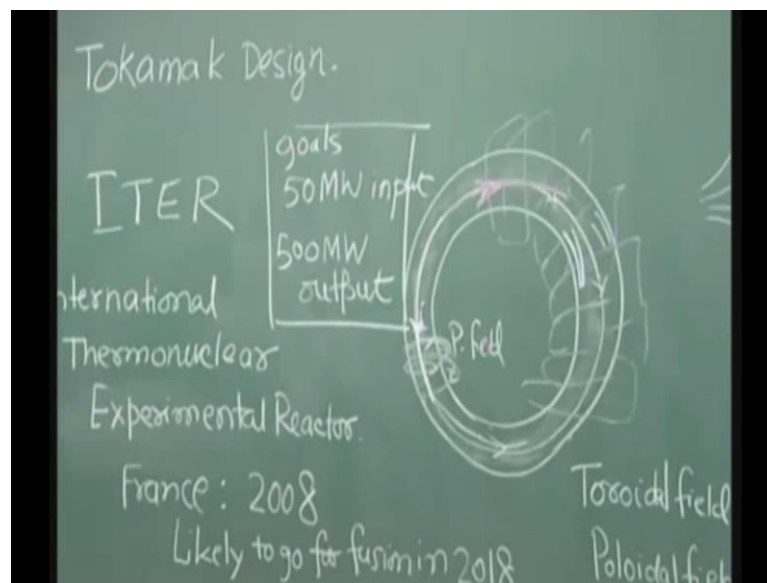 Tokamak Design.
ITER
goals
50MW input
500MW
output
nternational
Thermonuclear
Experimental Reactor.
P. field
France: 2008
Likely to go for fusion in 2018
Toroidal field
Poloidal fiel